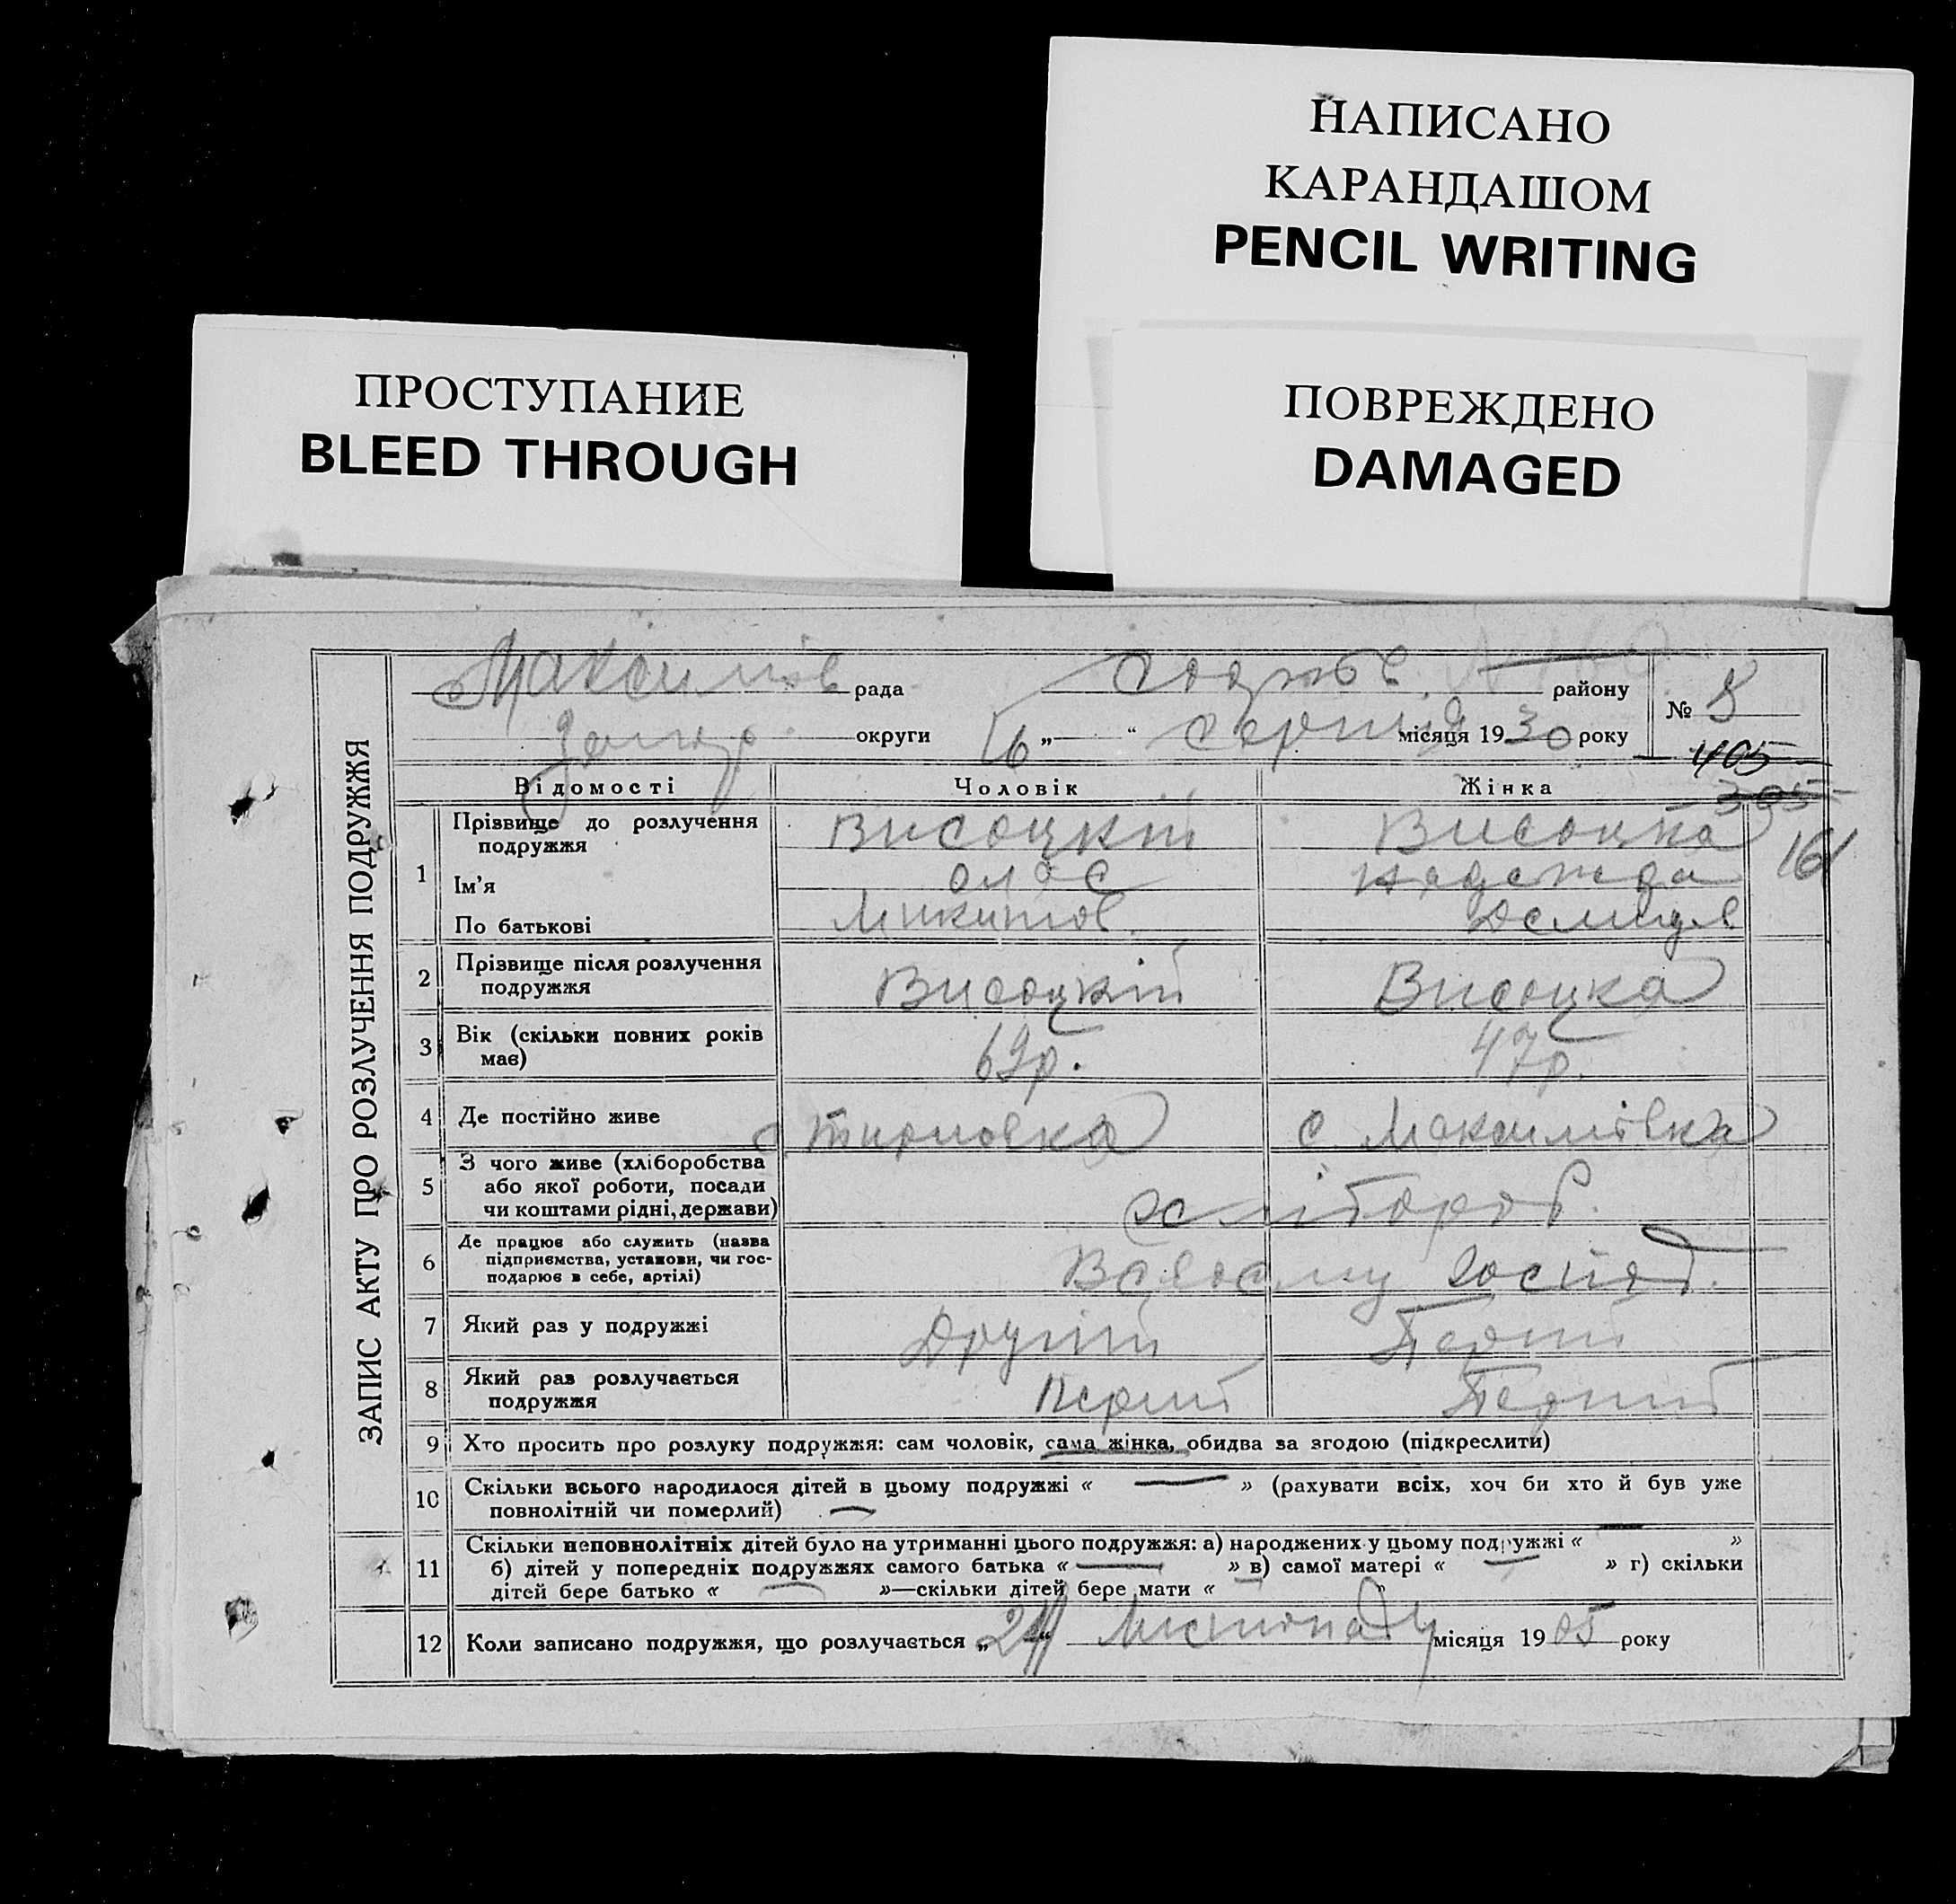 НАПИСАНО
КАРАНДАШОМ
PENCIL WRITING
ПРОСТУПАНИЕ
BLEED THROUGH
ПОВРЕЖДЕНО
DAMAGED
ЗАПИС АКТУ ПРО РОЗЛУЧЕННЯ ПОДРУЖЖЯ
Максимів рада району № 8
округи 16 „ “ Серпня місяця 1930 року
405
395
161
Відомості Чоловік Жінка
1 Прізвище до розлучення подружжя Висоцкій Висоцка
Ім’я Надежда
По батькові Микитов. Демид.
2 Прізвище після розлучення подружжя Висоцкій Висоцка
3 Вік (скільки повних років має) 69р. 47р.
4 Де постійно живе с. Тирновка с. Максимівка
5 З чого живе (хліборобства або якої роботи, посади чи коштами рідні, держави) Хлібороб.
6 Де працює або служить (назва підприємства, установи, чи господарює в себе, артілі) В своєму госпо д.
7 Який раз у подружжі Другий Перий
8 Який раз розлучається подружжя Перий Перий
9 Хто просить про розлуку подружжя: сам чоловік, сама жінка, обидва за згодою (підкреслити)
10 Скільки всього народилося дітей в цьому подружжі « — » (рахувати всіх, хоч би хто й був уже
повнолітній чи померлий) —
11 Скільки неповнолітніх дітей було на утриманні цього подружжя: а) народжених у цьому подружжі « — »
б) дітей у попередніх подружжях самого батька « — » в) самої матері « — » г) скільки
дітей бере батько « — »—скільки дітей бере мати « — »
12 Коли записано подружжя, що розлучається „24“ Листопаду місяця 1905 року